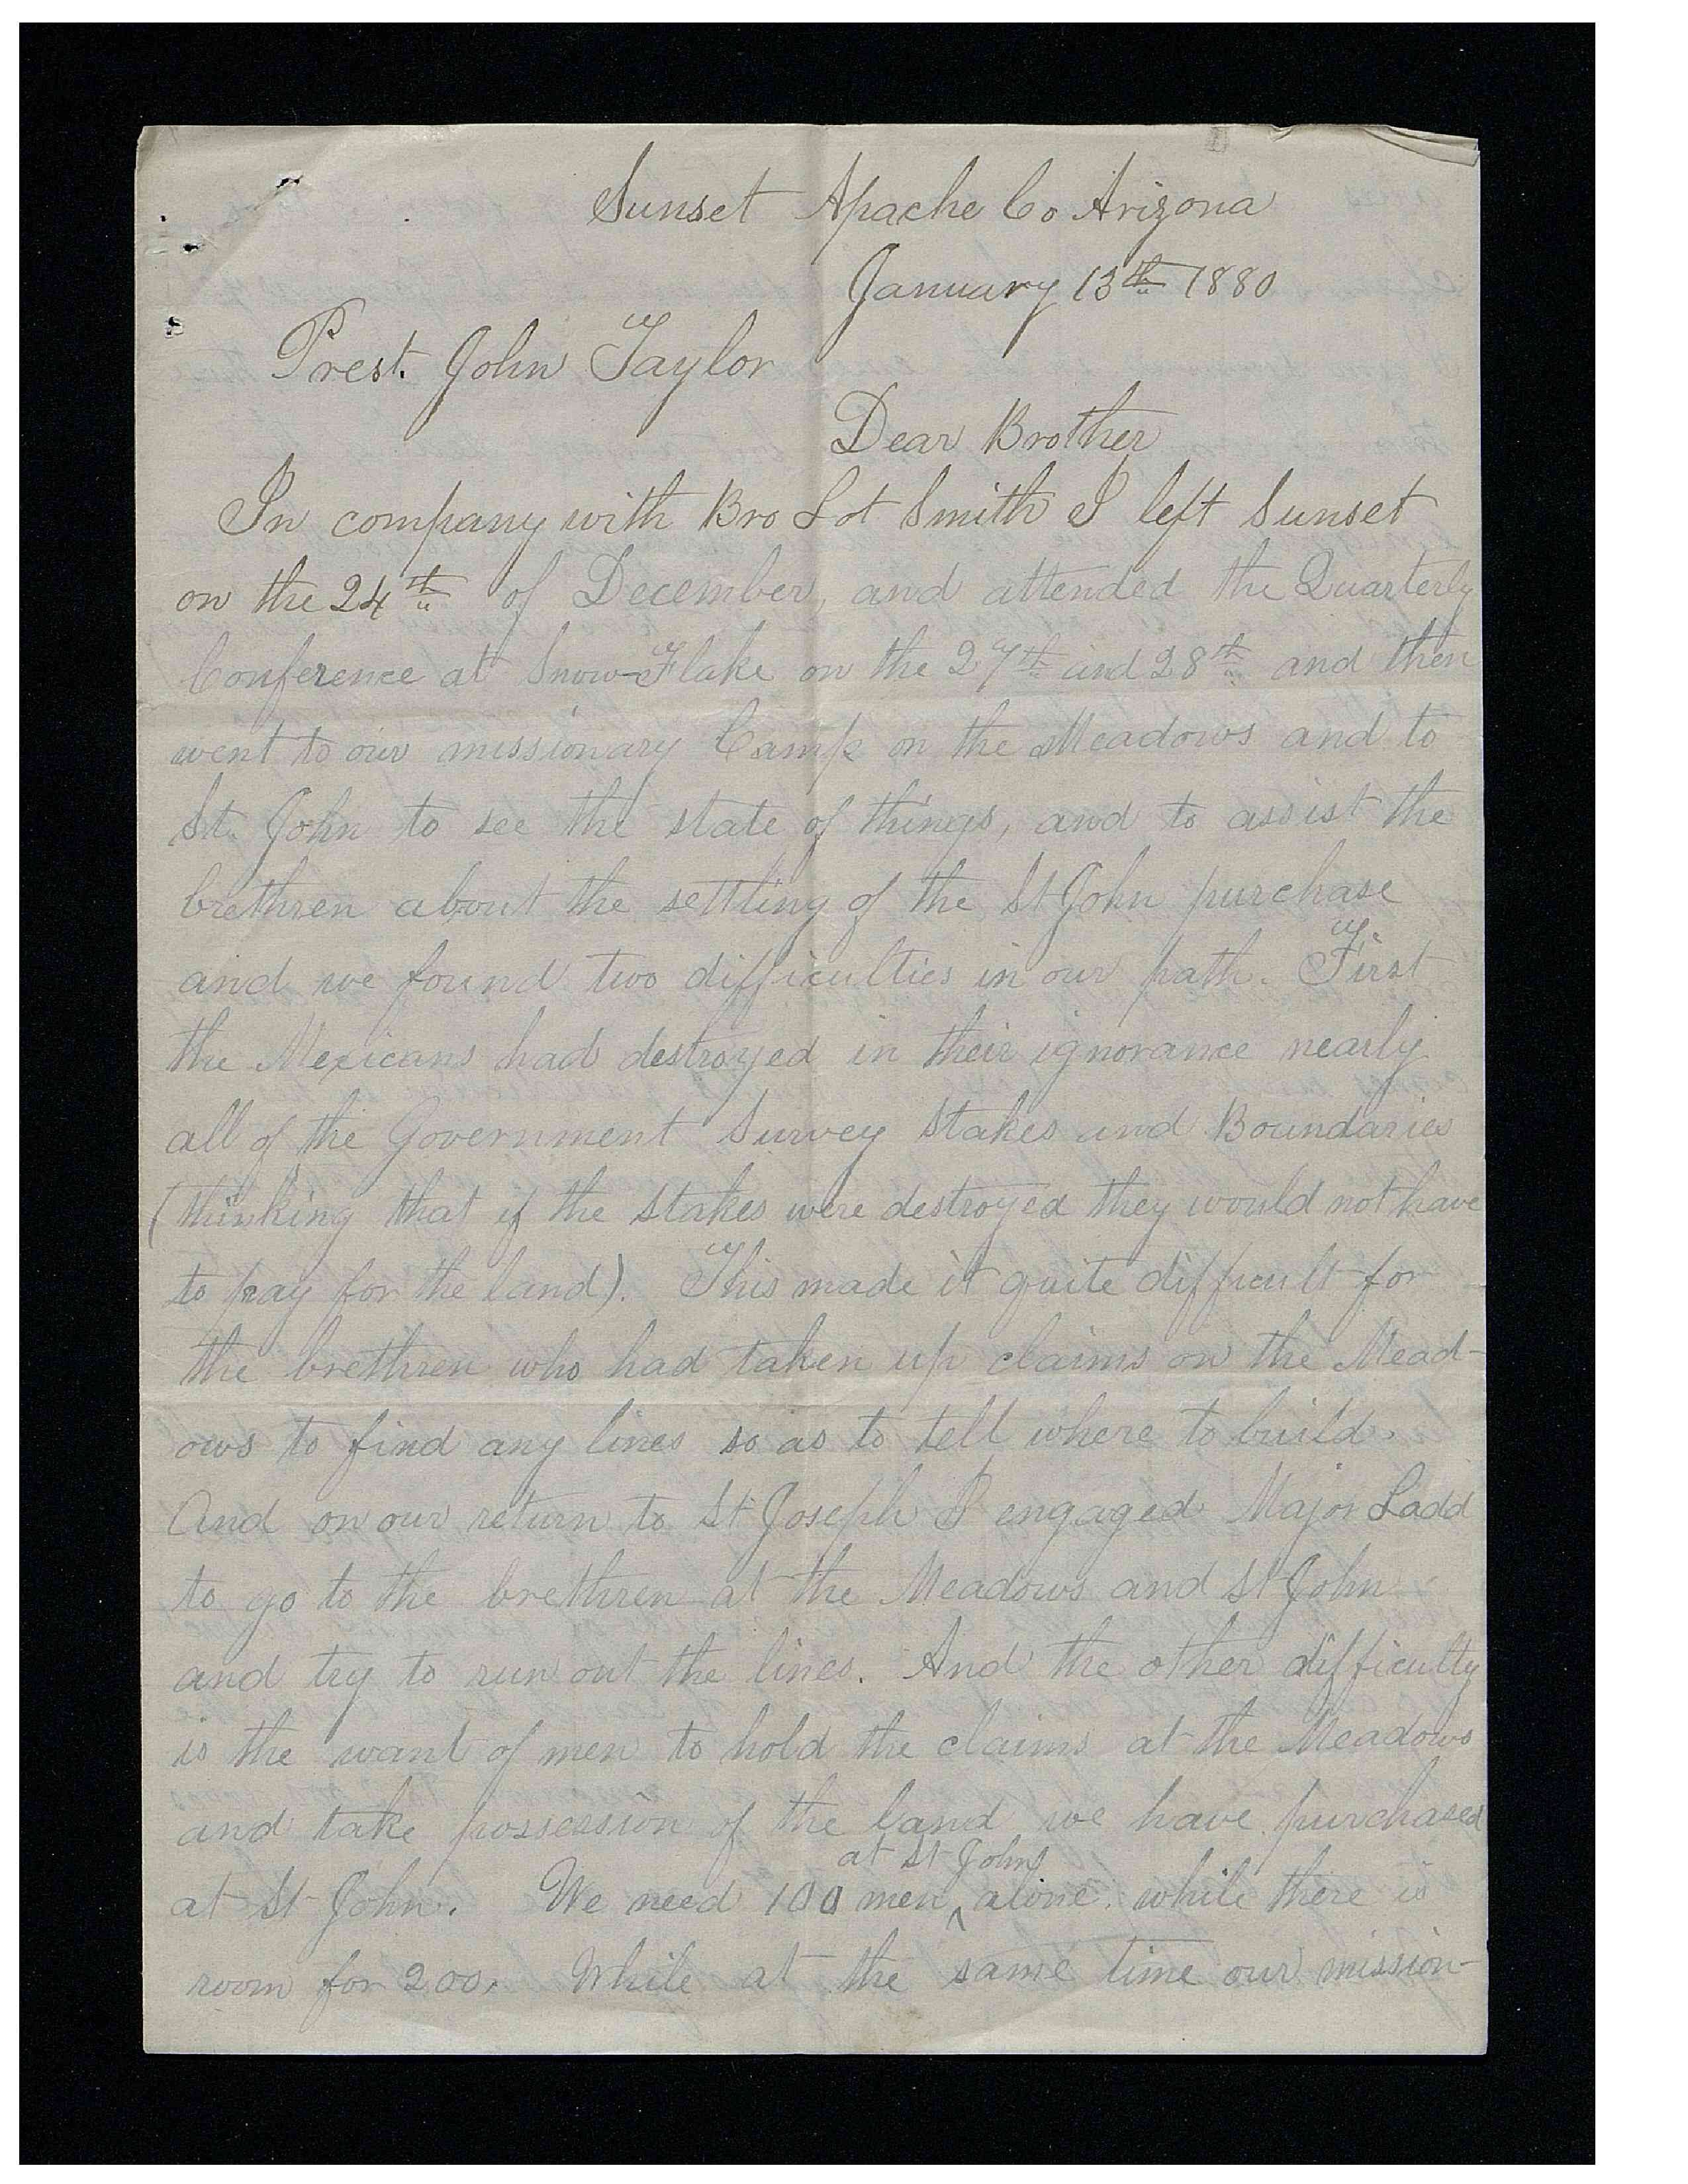 Sunset Apache Co Arizona
January 13th 1880
Prest. John Taylor
Dear Brother
In company with Bro Lot Smith I left Sunset
on the 24th of December, and attended the Quarterly
Conference at Snow-Flake on the 27th and 28th and then
went to our missionary Camp on the Meadows and to
St. John to see the state of things, and to assist the
brethren about the settling of the St John purchase
and we found two difficulties in our path. First
the Mexicans had destroyed in their ignorance nearly
all of the Government Survey Stakes and Boundaries
(thinking that if the stakes were destroyed they would not have
to pay for the land). This made it quite difficult for
the brethren who had taken up claims on the Mead-
ows to find any lines so as to tell where to build.
And on our return to St Joseph I engaged Major Ladd
to go to the brethren at the Meadows and St John
and try to run out the lines. And the other difficulty
is the want of men to hold the claims at the Meadows
and take possession of the land we have purchased
at St John. We need 100 men at St Johns alone. while there is
room for 200. While at the same time our mission-